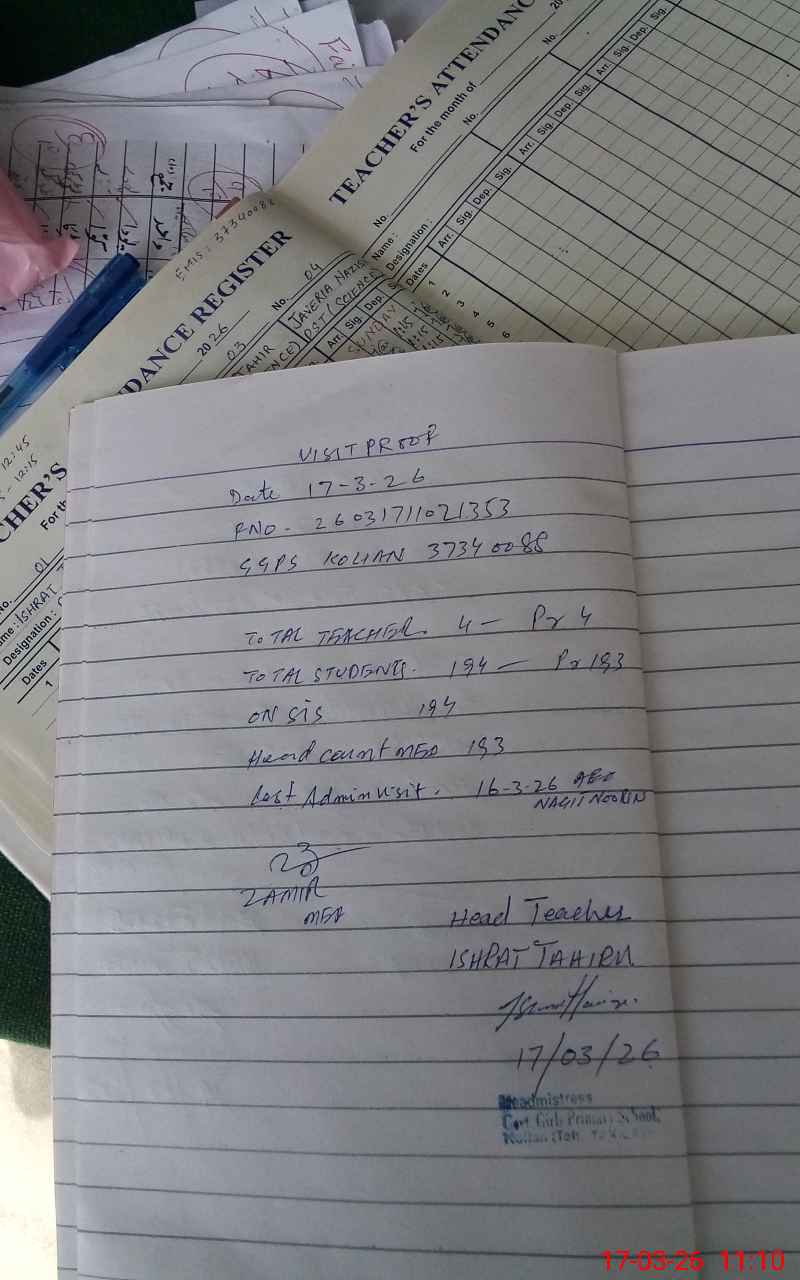 TEACHER'S ATTENDANC
For the month of
20
No.
No.
No.
Name:
Designation:
Dates
Arr. Sig. Dep. Sig. Arr. Sig. Dep. Sig. Arr. Sig. Dep. Sig.
1
2
3
4
5
6
EMIS: 37340088
DANCE REGISTER
03 2026
No. 04
TAHIR
JAVERIA NAZISH
ENCE)
PST (SCIENCE)
Arr. Sig. Dep. S
SUNDAY
12:45
12:15
CHER'S
For th
No. 01
me: ISHRAT T
Designation:
Dates
1
VISIT PROOF
Date 17-3-26
RNO- 26031711021353
GGPS KOLIAN 37340088
TOTAL TEACHER. 4 - Pr 4
TOTAL STUDENTS. 194 - Pr 193
ON SIS 194
Head count MEA 193
Last Admin visit. 16-3-26 AEO
NAGIT NOORIN
ZAMIR
MEA
Head Teacher
ISHRAT TAHIRA
17/03/26
Headmistress
Govt. Girls Primary School,
17-03-26 11:10